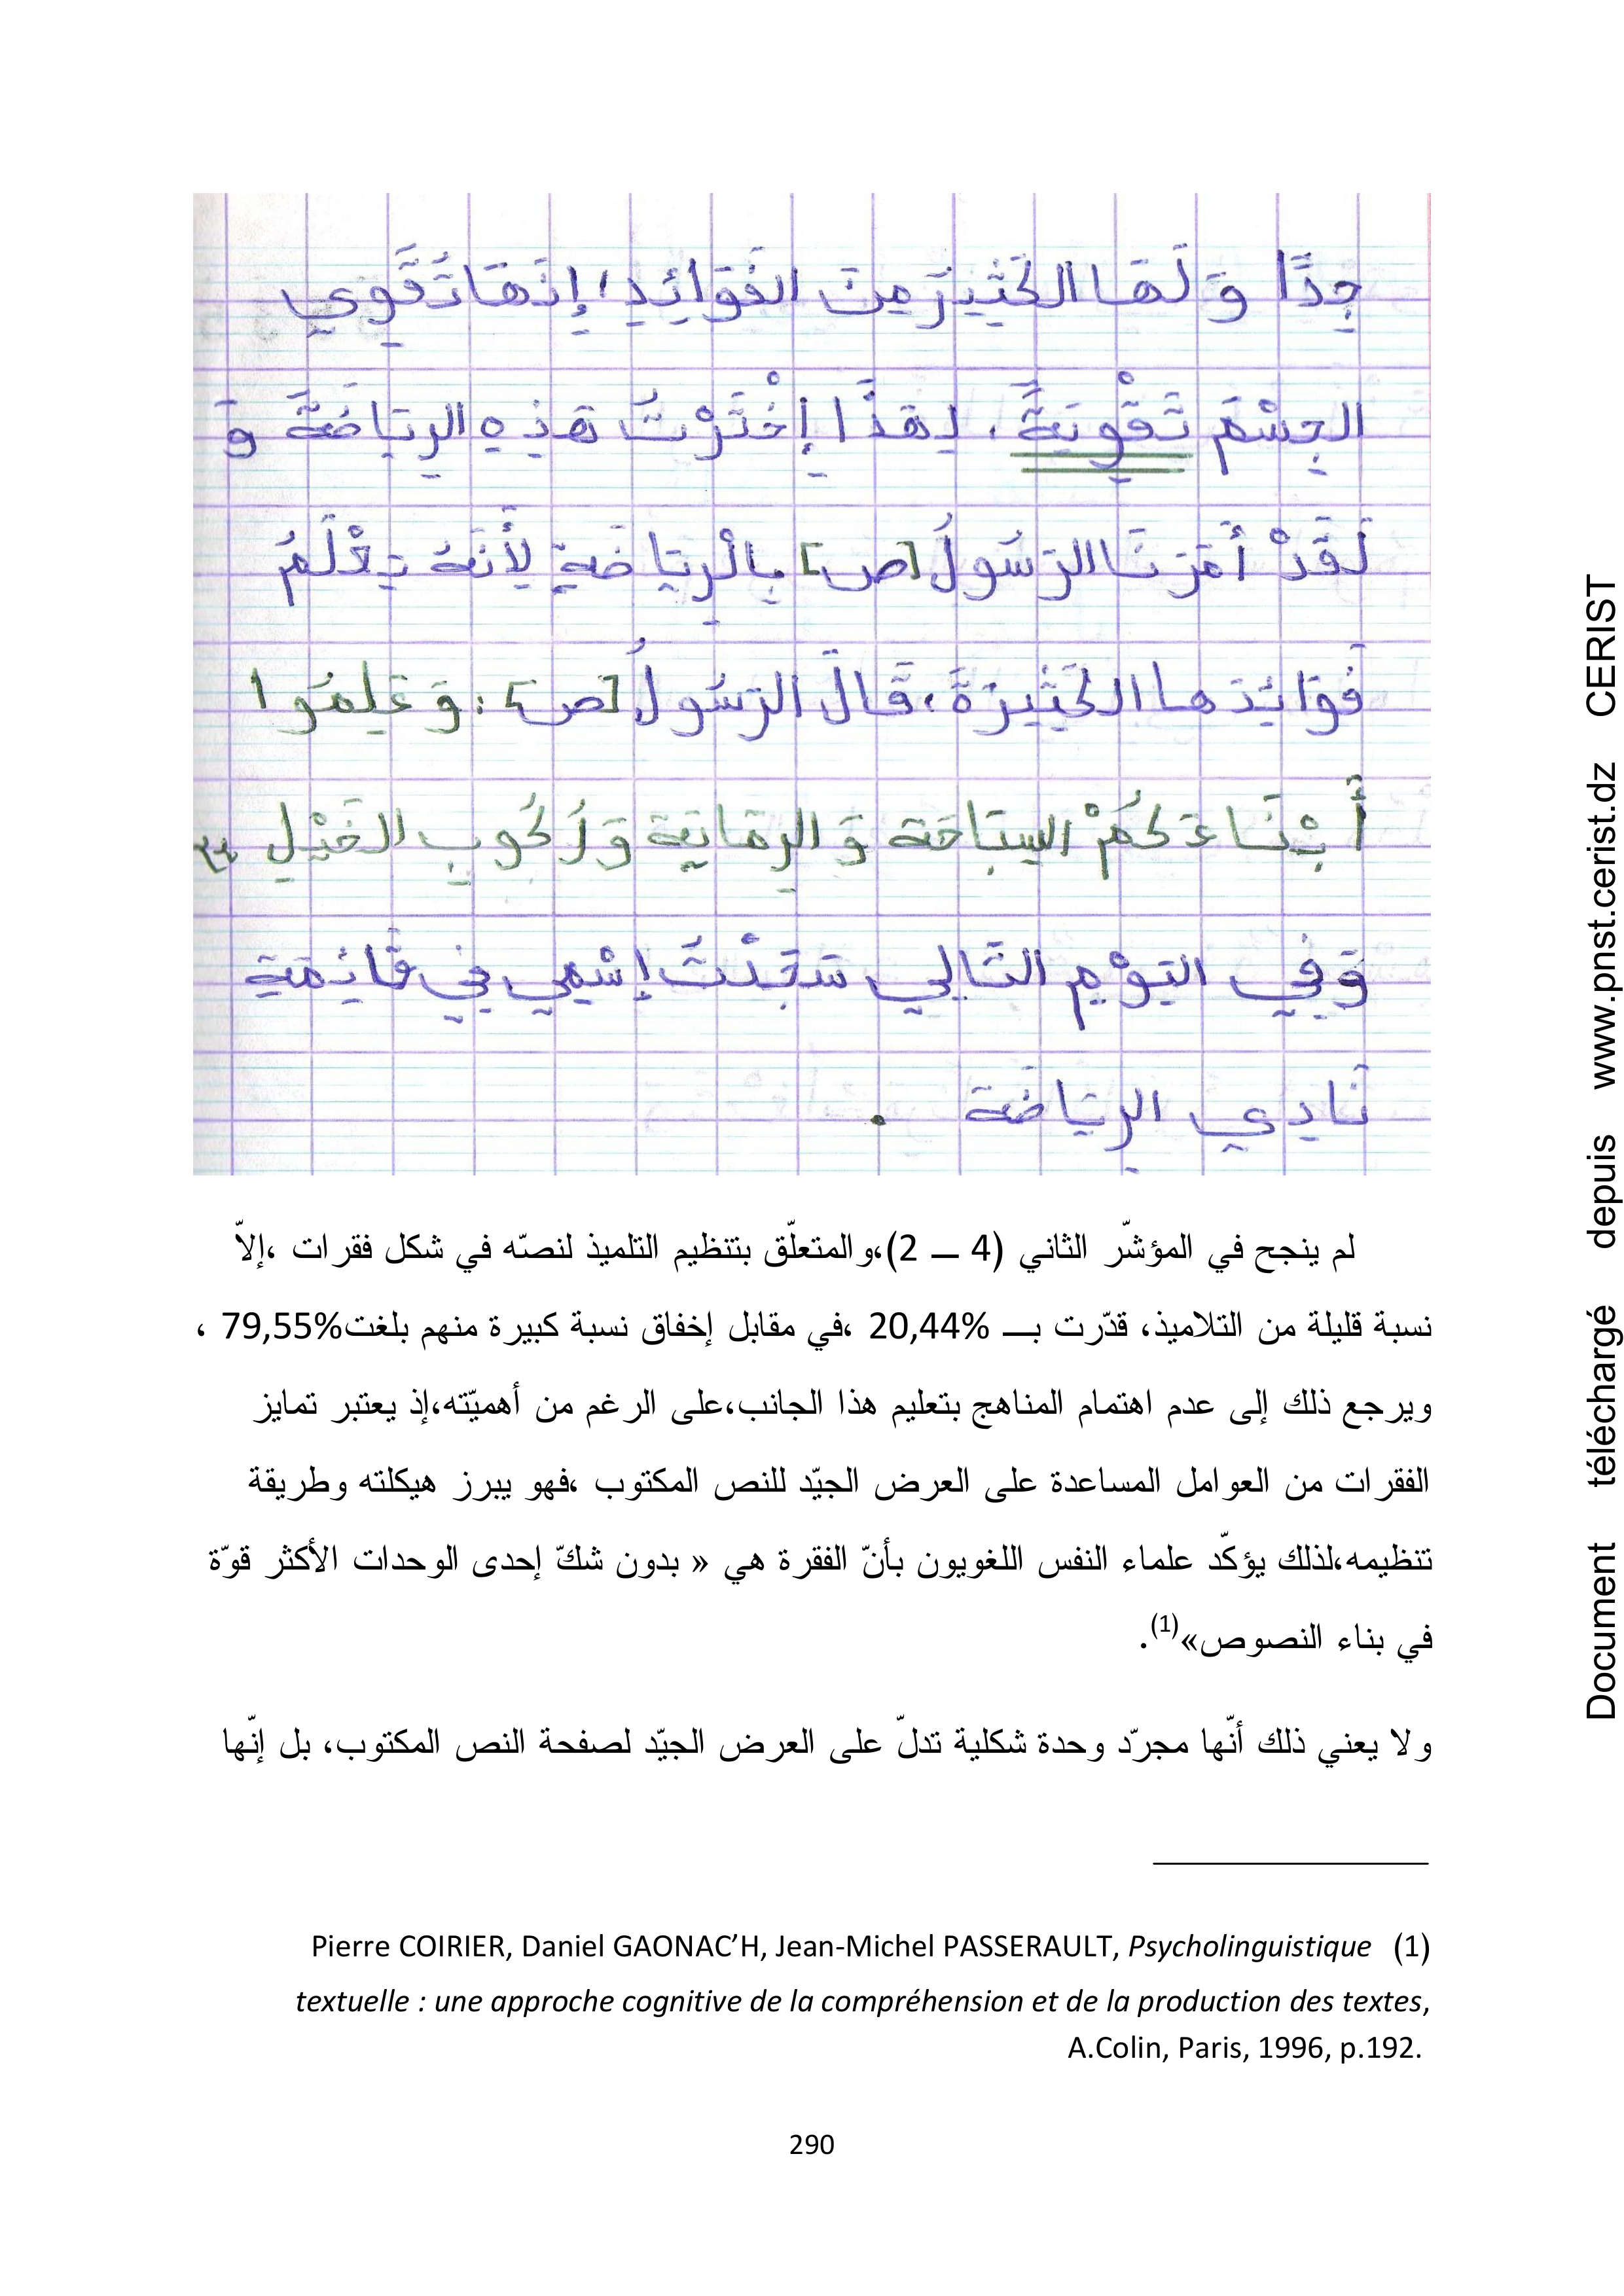 جِدًّا وَ لَهَا الكَثِيرَ مِنَ الفَوَائِدِ، إِنَهَا تُقَوِي
الجِسْمَ تَقْوِيَةً. لِهَذَا إِخْتَرْتُ هَذِهِ الرِيَاضَةَ وَ
لَقَدْ أَمَرَنَا الرَسُولُ [ص] بِالْرِيَاضَةِ لِأَنَهُ يَعْلَمُ
فَوَائِدَهَا الكَثِيرَةَ، قَالَ الرَسُولُ [ص] : وَ عَلِمُوا
أَبْنَاءَكُمْ السِبَاحَة وَ الرِمَايَة وَ رُكُوبِ الخَيْلِ
وَ فِي اليَوْمِ التَالِي سَجَدْتُ إِسْمِي فِي قَائِمَةِ
نَادِي الرِيَاضَة .
لم ينجح في المؤشّر الثاني (4 ــ 2)،والمتعلّق بتنظيم التلميذ لنصّه في شكل فقرات ،إلاّ
نسبة قليلة من التلاميذ، قدّرت بــ 20,44% ،في مقابل إخفاق نسبة كبيرة منهم بلغت79,55% ،
ويرجع ذلك إلى عدم اهتمام المناهج بتعليم هذا الجانب،على الرغم من أهميّته،إذ يعتبر تمايز
الفقرات من العوامل المساعدة على العرض الجيّد للنص المكتوب ،فهو يبرز هيكلته وطريقة
تنظيمه،لذلك يؤكّد علماء النفس اللغويون بأنّ الفقرة هي « بدون شكّ إحدى الوحدات الأكثر قوّة
في بناء النصوص»(1).
ولا يعني ذلك أنّها مجرّد وحدة شكلية تدلّ على العرض الجيّد لصفحة النص المكتوب، بل إنّها
(1) Pierre COIRIER, Daniel GAONAC’H, Jean-Michel PASSERAULT, Psycholinguistique
textuelle : une approche cognitive de la compréhension et de la production des textes,
A.Colin, Paris, 1996, p.192.
290
Document téléchargé depuis www.pnst.cerist.dz CERIST